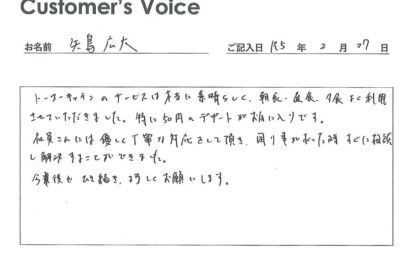 Customer's Voice
お名前 矢島 広大
ご記入日 R5 年 2 月 27 日
トーコーキッチンのサービスは本当に素晴らしく、朝食・昼食、夕食よく利用
させていただきました。特に50円のデザートがお気に入りです。
社員さんには優しく丁寧な対応をして頂き、困り事があった時すぐに相談
し解決することができました。
今後もひき続き、よろしくお願いします。